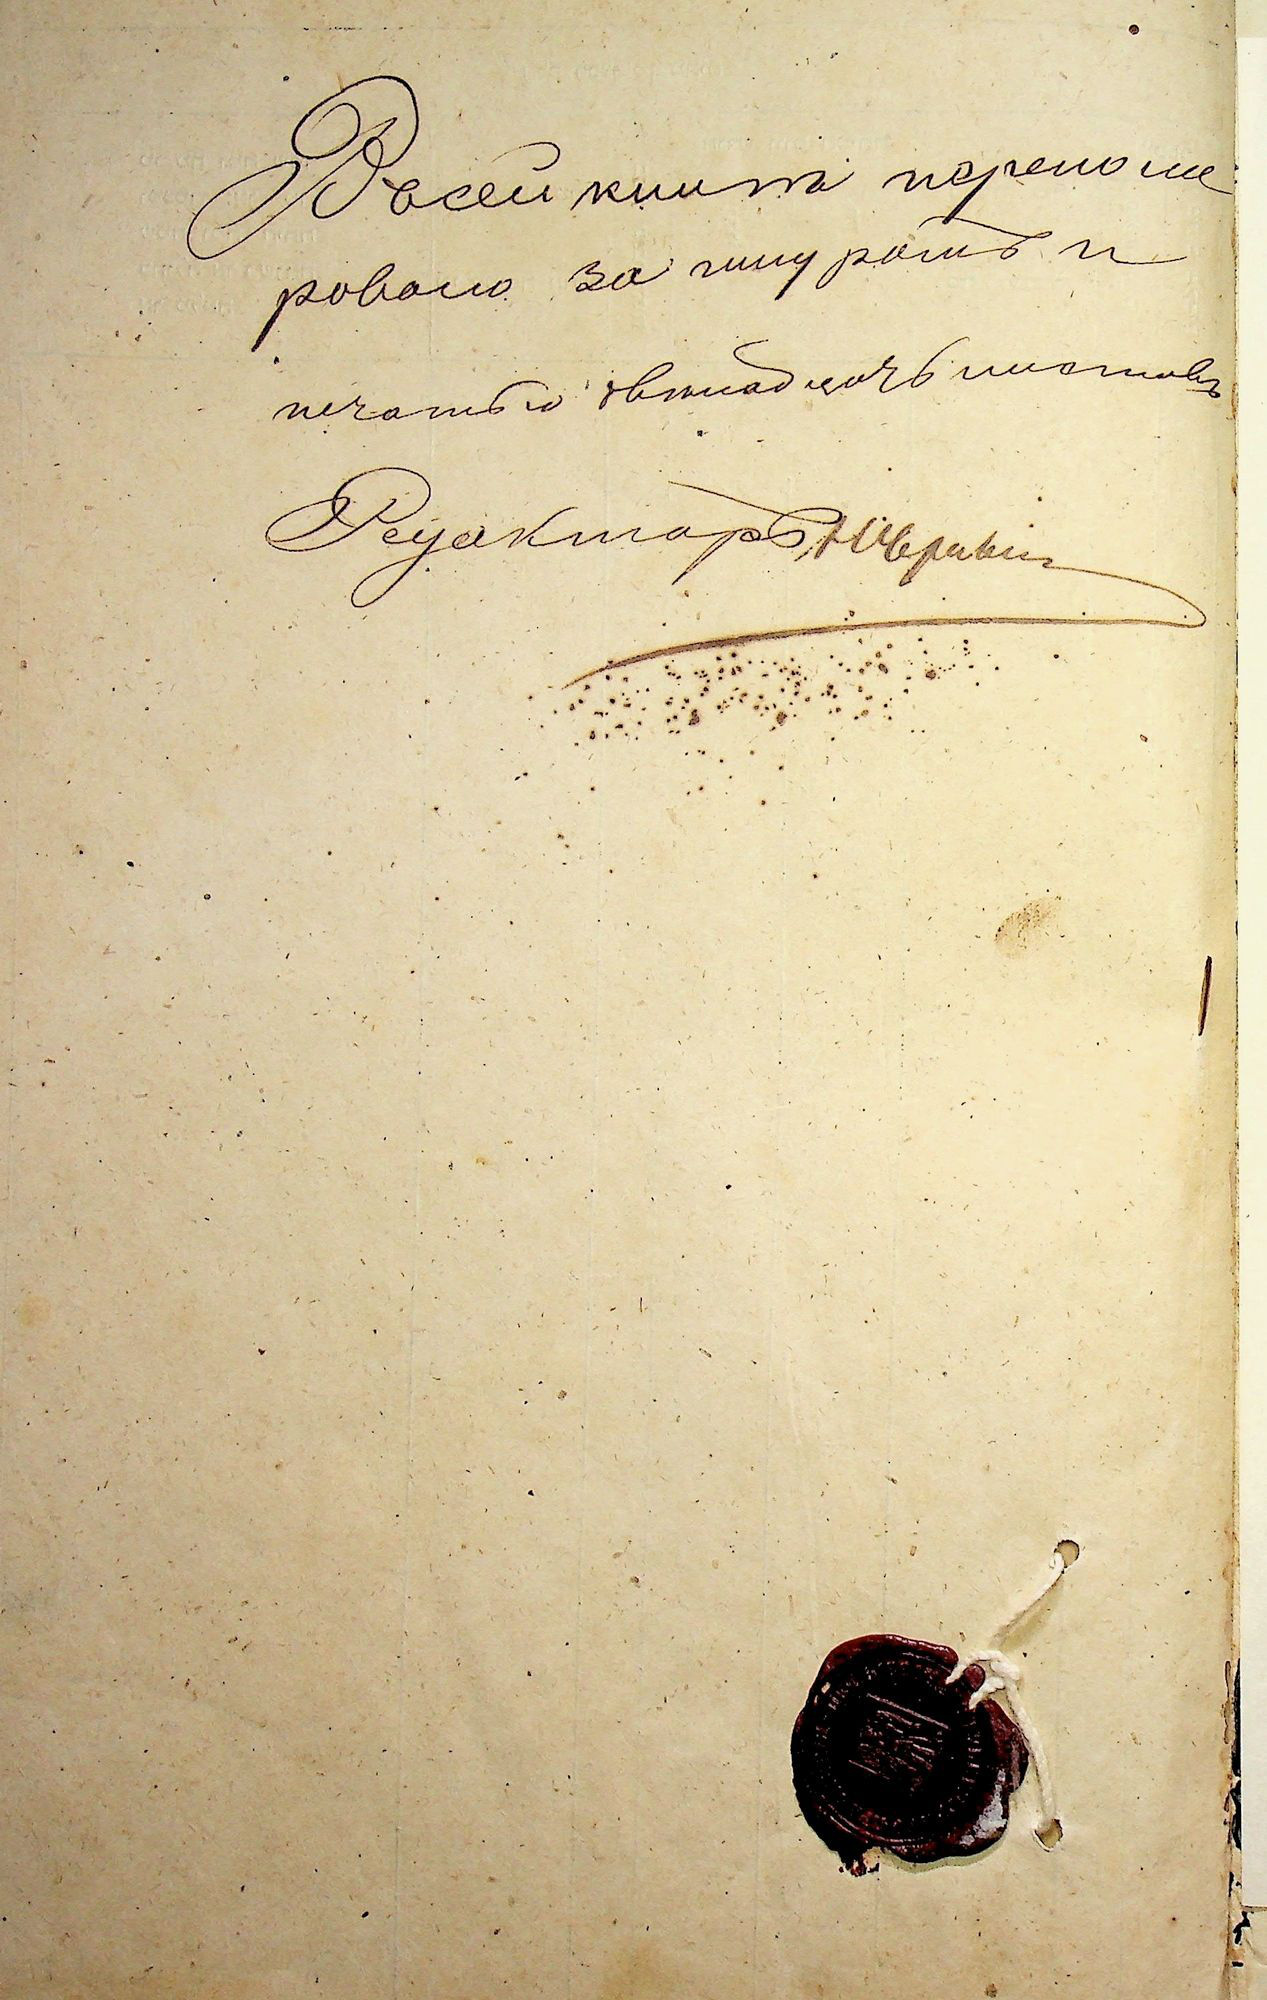 В сей книги перенуме
ровано за шнуромъ и
печатью двенадцать листовъ
Редакторъ